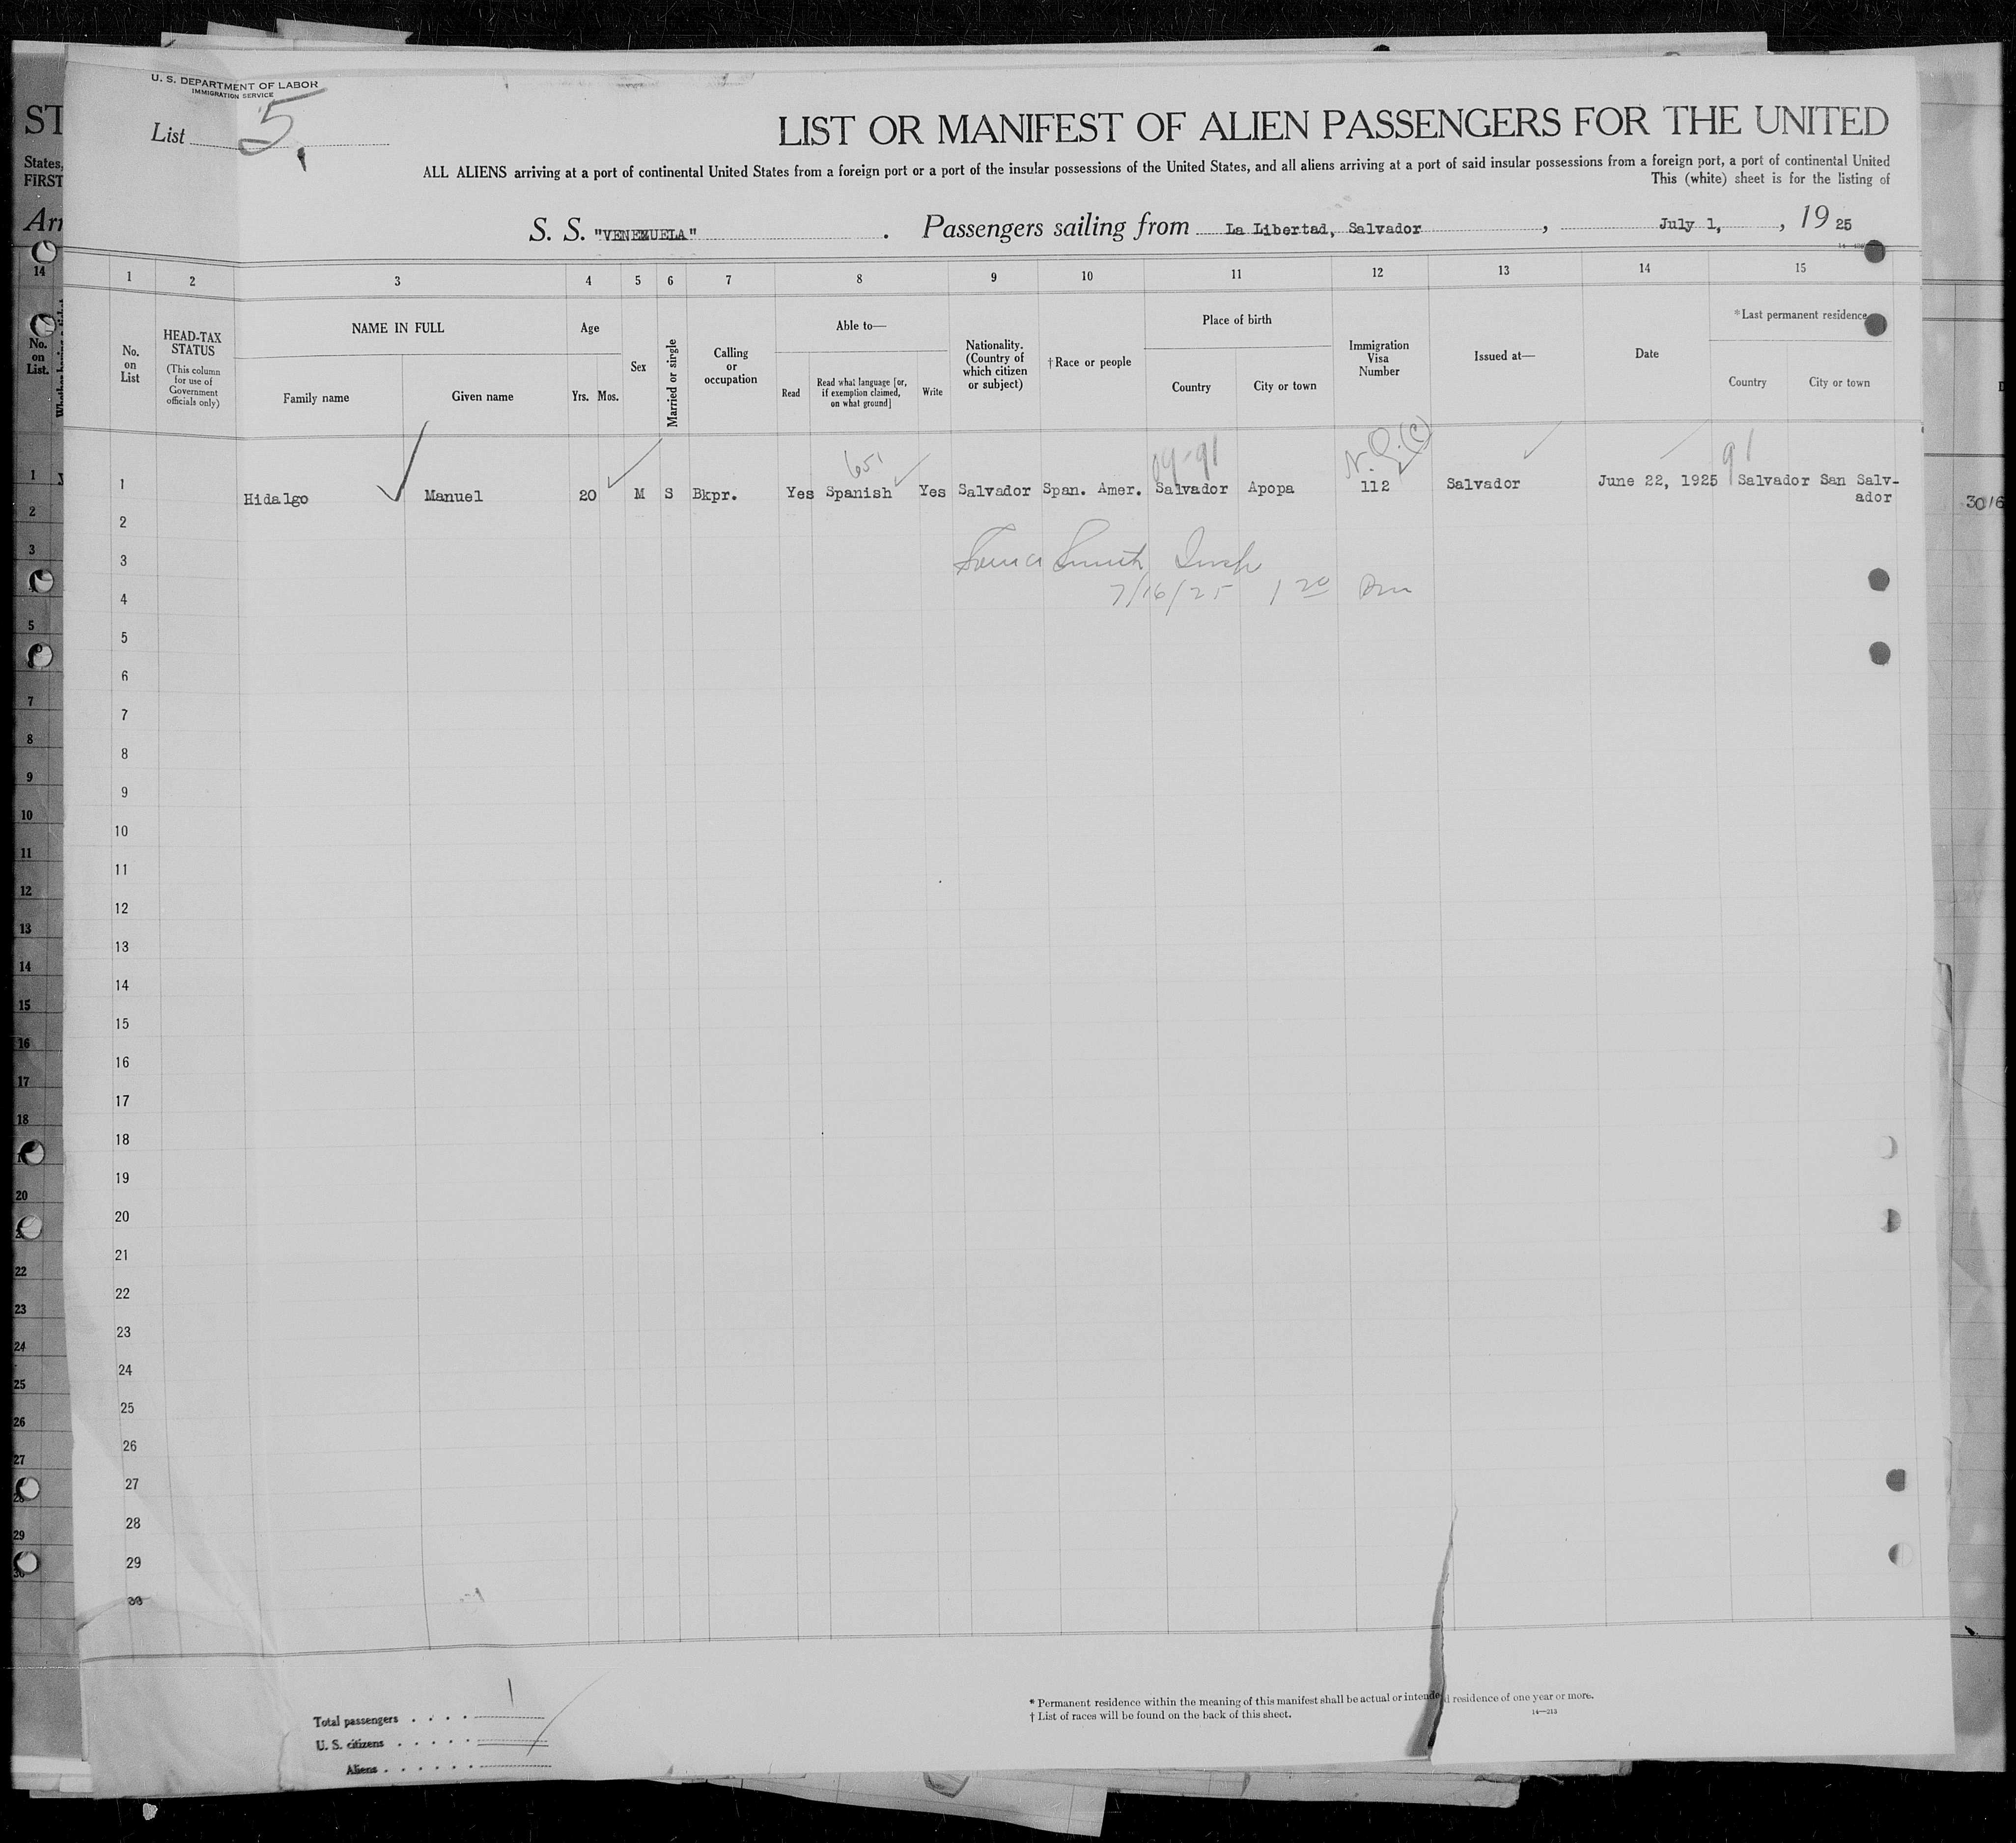 U. S. DEPARTMENT OF LABOR
IMMIGRATION SERVICE
List 5
LIST OR MANIFEST OF ALIEN PASSENGERS FOR THE UNITED
ALL ALIENS arriving at a port of continental United States from a foreign port or a port of the insular possessions of the United States, and all aliens arriving at a port of said insular possessions from a foreign port, a port of continental United
This (white) sheet is for the listing of
S. S. "VENEZUELA" . Passengers sailing from La Libertad, Salvador , July 1, , 19 25
1 2 3 4 5 6 7 8 9 10 11 12 13 14 15
No. on List
HEAD-TAX STATUS
(This column for use of Government officials only)
NAME IN FULL
Family name Given name
Age
Yrs. Mos.
Sex
Married or single
Calling or occupation
Able to—
Read
Read what language [or, if exemption claimed, on what ground]
Write
Nationality. (Country of which citizen or subject)
†Race or people
Place of birth
Country City or town
Immigration Visa Number
Issued at—
Date
*Last permanent residence
Country City or town
651 09-91 N.Q.(c) 91
1 Hidalgo Manuel 20 M S Bkpr. Yes Spanish Yes Salvador Span. Amer. Salvador Apopa 112 Salvador June 22, 1925 Salvador San Salv-
ador
2
3 Smith Insp
4 7/16/25 1 20 Pm
5
6
7
8
9
10
11
12
13
14
15
16
17
18
19
20
21
22
23
24
25
26
27
28
29
30
Total passengers . . . . 1
U. S. citizens . . . . .
Aliens . . . . . .
* Permanent residence within the meaning of this manifest shall be actual or intended residence of one year or more.
† List of races will be found on the back of this sheet.
14—213
ST
States,
FIRST
Arr
14
No. on List.
1
2
3
5
7
8
9
10
11
12
13
14
15
16
17
18
20
22
23
24
25
26
27
29
3016